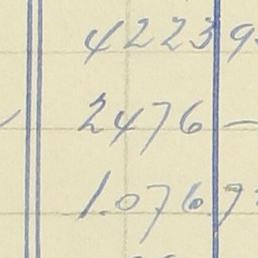 42239
2476 —
1.0767